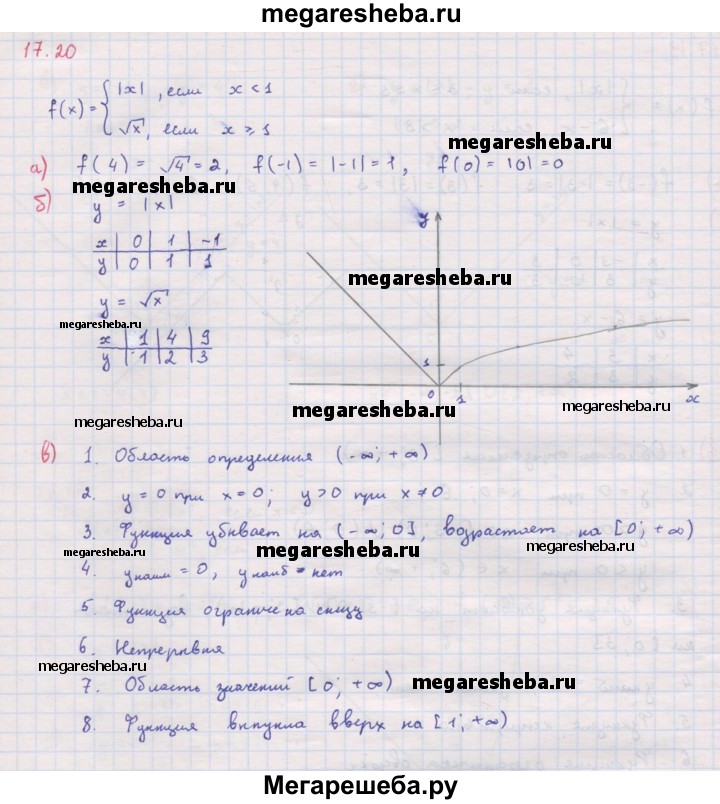 megaresheba.ru
17.20
f(x) = { |x|, если x < 1
√x, если x ⩾ 1
megaresheba.ru
а) f(4) = √4 = 2, f(-1) = |-1| = 1, f(0) = |0| = 0
megaresheba.ru
б) y = |x|
x | 0 | 1 | -1
y | 0 | 1 | 1
y = √x
megaresheba.ru
x | 1 | 4 | 9
y | 1 | 2 | 3
y
megaresheba.ru
1
0 1 x
megaresheba.ru
megaresheba.ru
megaresheba.ru
в) 1. Область определения (-∞; +∞)
2. y = 0 при x = 0; y > 0 при x ≠ 0
3. Функция убывает на (-∞; 0], возрастает на [0; +∞)
megaresheba.ru
megaresheba.ru
megaresheba.ru
4. yнаим = 0, yнаиб = нет
5. Функция ограничена снизу
6. Непрерывная
megaresheba.ru
7. Область значений [0; +∞)
megaresheba.ru
8. Функция выпукла вверх на [1; +∞)
Мегарешеба.ру